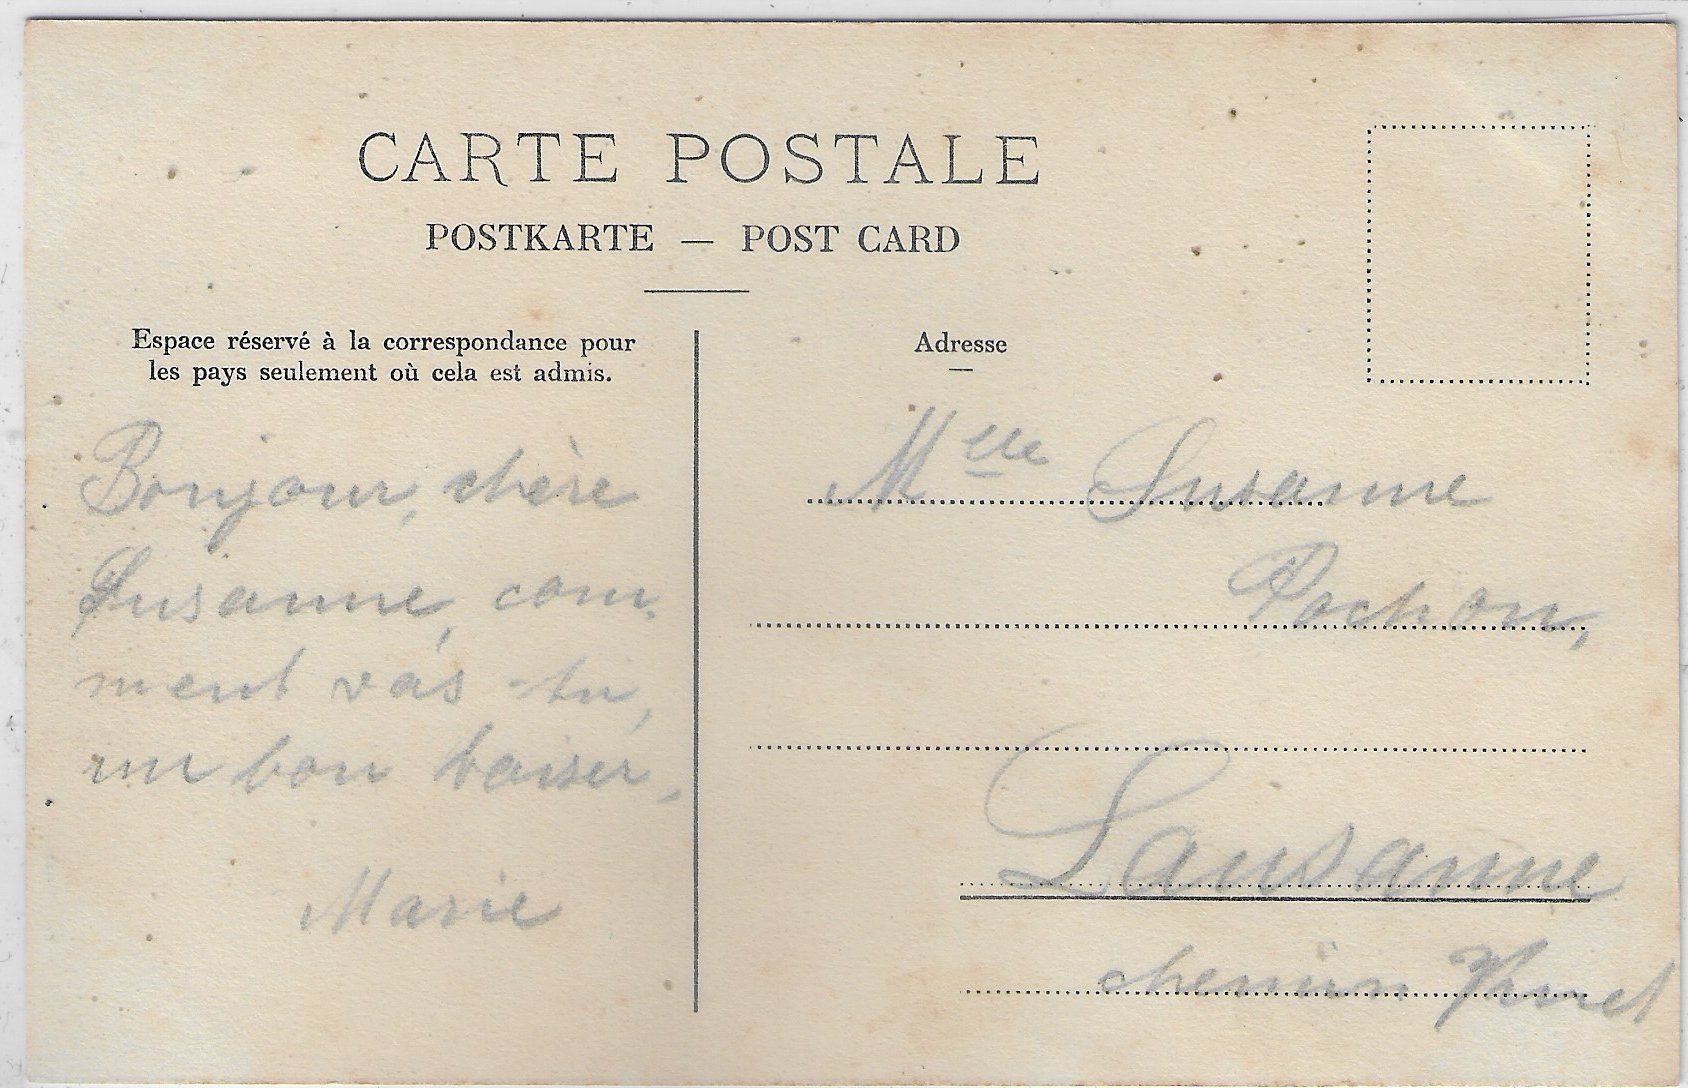 CARTE POSTALE
POSTKARTE — POST CARD
Espace réservé à la correspondance pour
les pays seulement où cela est admis.
Bonjour, chère
Susanne, com-
ment vas-tu,
un bon baiser.
Marie
Adresse
Mlle Susanne
Pochon,
Lausanne
chemin